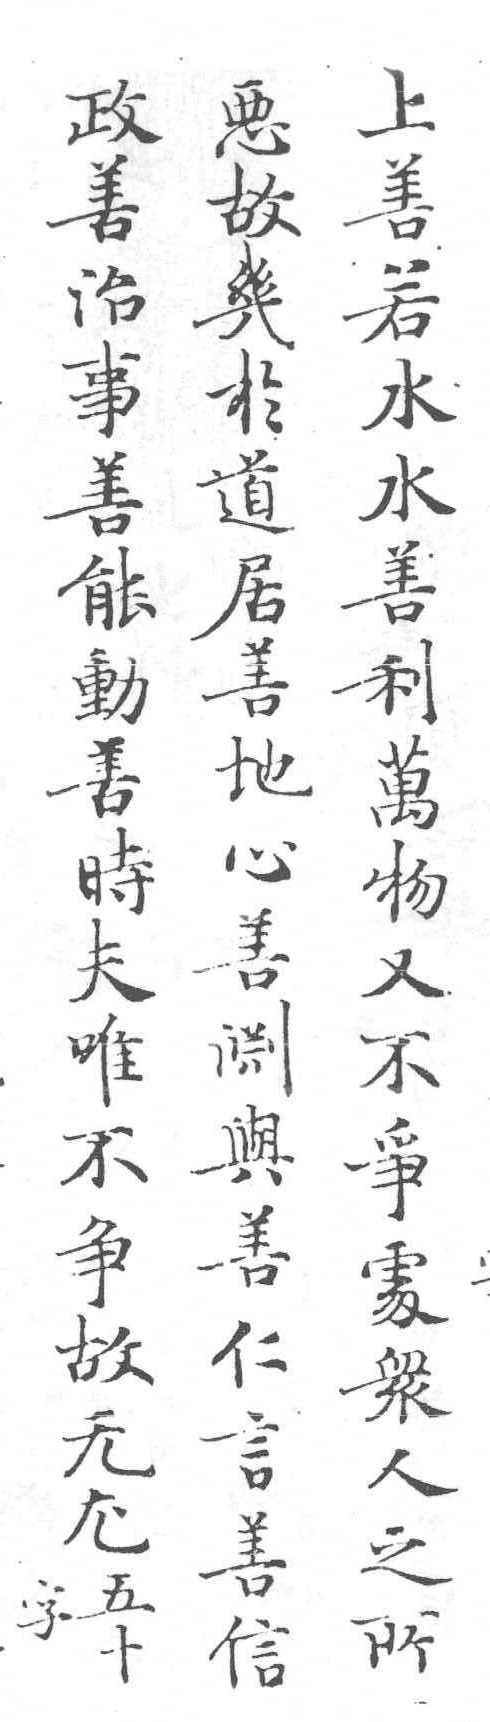 上善若水水善利萬物又不爭處衆人之所
惡故幾於道居善地心善淵與善仁言善信
政善治事善能動善時夫唯不爭故无尤五十字